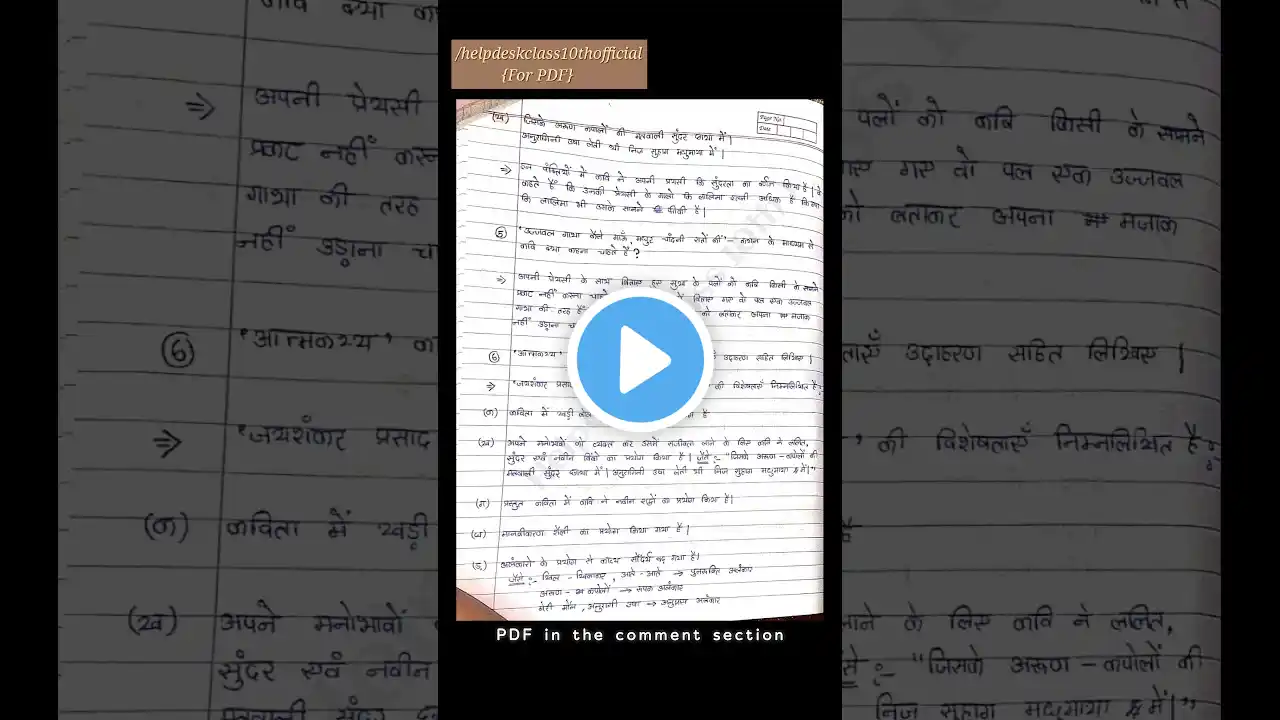 /helpdeskclass10thofficial
{For PDF}
Page No.
Date
(ख) जिसके अरूण कपोलों की मतवाली सुंदर छाया में |
अनुरागिनी उषा लेती थी निज सुहाग मधुमाया में |
⇒ इन पंक्तियों में कवि ने अपनी प्रेयसी कि सुंदरता का वर्णन किया है | वे
कहते हैं कि उनकी प्रेयसी के गालो कि लालिमा इतनी अधिक है कि उषा
कि लालिमा भी उसके सामने फीकी है |
⑤ 'उज्जवल गाथा कैसे गाऊँ, मधुर चाँदनी रातों की' - कथन के माध्यम से
कवि क्या कहना चाहते हैं ?
⇒ अपनी प्रेयसी के साथ बिताए हुए सुख के पलों को कवि किसी के सामने
प्रकट नहीं करना चाहते में बिताए गए वो पल एक उज्जवल
गाथा की तरह हैं को बताकर अपना मजाक
नहीं उड़ाना चा
⑥ 'आत्मकथ्य' उदाहरण सहित लिखिए |
⇒ 'जयशंकर प्रसाद की विशेषताएँ निम्नलिखित है :-
(क) कविता में खड़ी बोल है
(ख) अपने मनोभावों को व्यक्त कर उसमें सजीवता लाने के लिए कवि ने ललित,
सुंदर एवं नवीन बिंबों का प्रयोग किया है | जैसे :- "जिसके अरूण - कपोलों की
मतवाली सुंदर छाया में | अनुरागिनी उषा लेती थी निज सुहाग मधुमाया में |"
(ग) प्रस्तुत कविता में कवि ने नवीन शब्दों का प्रयोग किया है |
(घ) मानवीकरण शैली का प्रयोग किया गया है |
(ङ) अलंकारो के प्रयोग से काव्य सौंदर्य बढ़ गया है |
जैसे :- खिल - खिलाकर , आते - आते → पुनरुक्ति अलंकार
अरूण - कपोलों → रूपक अलंकार
मेरी मौन , अनुरागी उषा → अनुप्रास अलंकार
PDF in the comment section